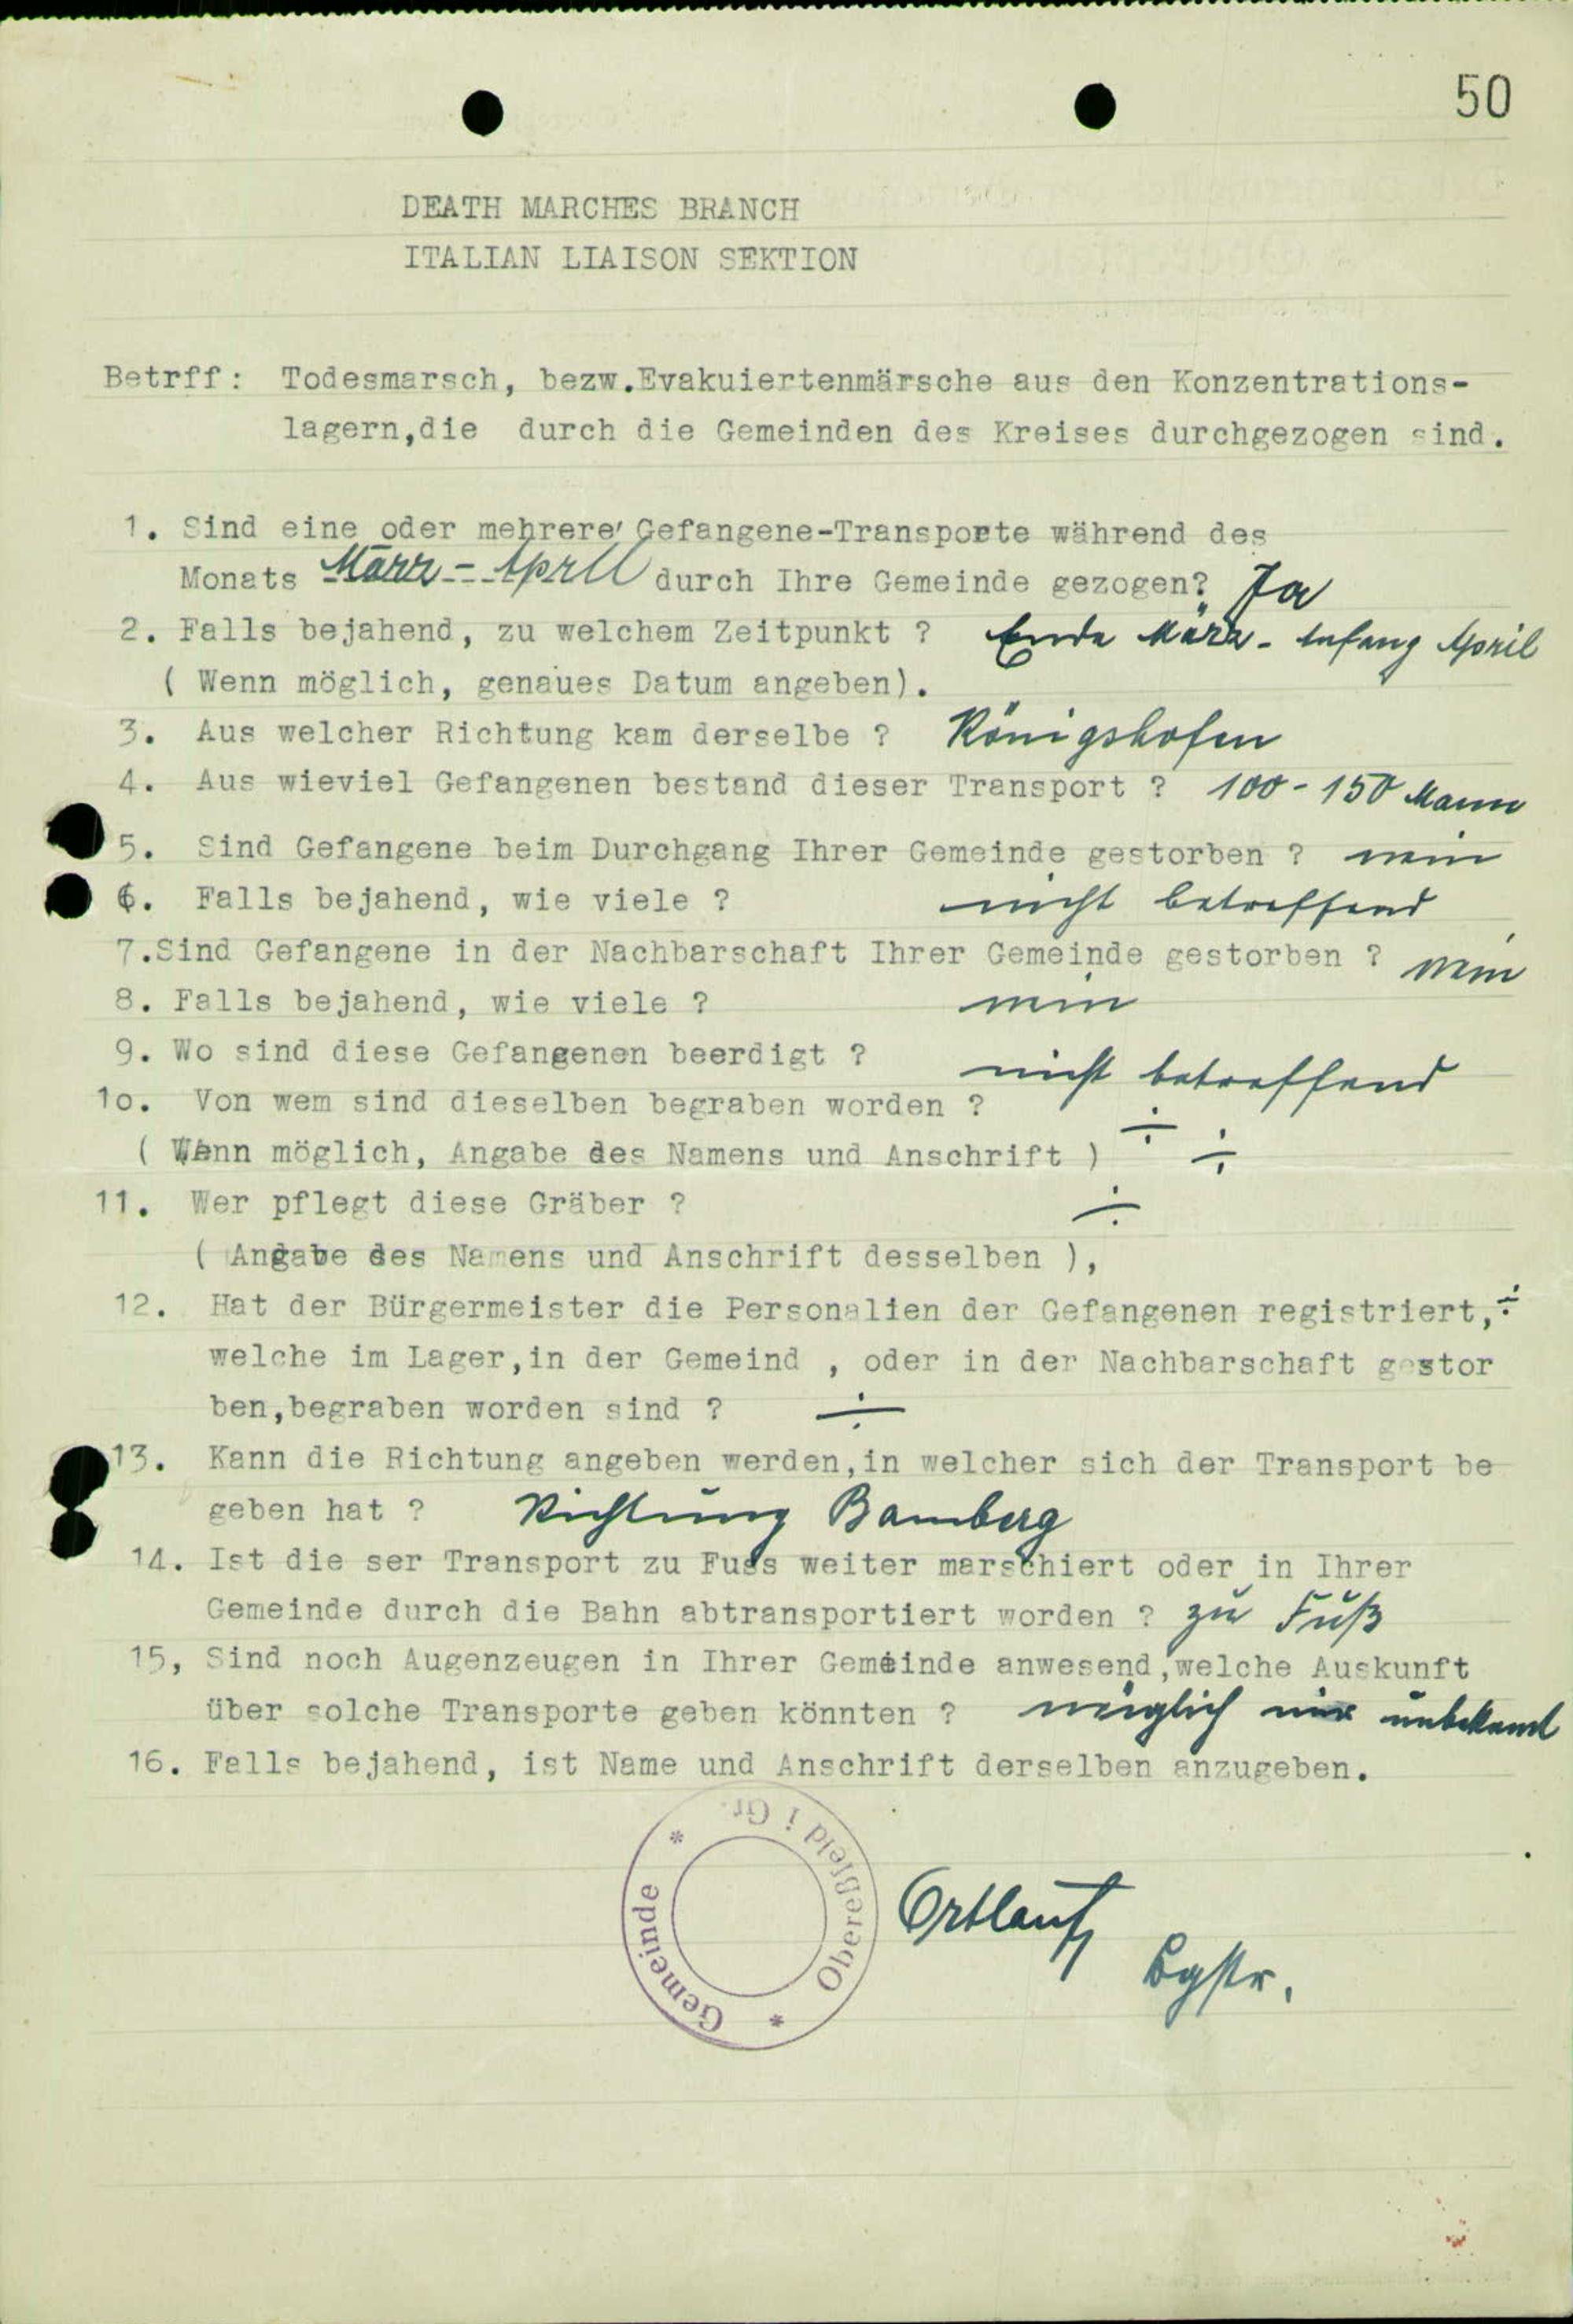 50
DEATH MARCHES BRANCH
ITALIAN LIAISON SEKTION
Betrff: Todesmarsch, bezw.Evakuiertenmärsche aus den Konzentrations-
lagern,die durch die Gemeinden des Kreises durchgezogen sind.
1. Sind eine oder mehrere Gefangene-Transporte während des
Monats März - April durch Ihre Gemeinde gezogen? Ja
2. Falls bejahend, zu welchem Zeitpunkt ? Ende März - Anfang April
( Wenn möglich, genaues Datum angeben).
3. Aus welcher Richtung kam derselbe ? Königshofen
4. Aus wieviel Gefangenen bestand dieser Transport ? 100 - 150 Mann
5. Sind Gefangene beim Durchgang Ihrer Gemeinde gestorben ? nein
6. Falls bejahend, wie viele ? nicht betreffend
7.Sind Gefangene in der Nachbarschaft Ihrer Gemeinde gestorben ? nein
8. Falls bejahend, wie viele ? nein
9. Wo sind diese Gefangenen beerdigt ? nicht betreffend
1o. Von wem sind dieselben begraben worden ? ÷
( Wenn möglich, Angabe des Namens und Anschrift ) ÷
11. Wer pflegt diese Gräber ? ÷
( Angabe des Namens und Anschrift desselben ),
12. Hat der Bürgermeister die Personalien der Gefangenen registriert, ÷
welche im Lager,in der Gemeind , oder in der Nachbarschaft gestor
ben,begraben worden sind ? ÷
13. Kann die Richtung angeben werden,in welcher sich der Transport be
geben hat ? Richtung Bamberg
14. Ist die ser Transport zu Fuss weiter marschiert oder in Ihrer
Gemeinde durch die Bahn abtransportiert worden ? zu Fuß
15, Sind noch Augenzeugen in Ihrer Gemeinde anwesend,welche Auskunft
über solche Transporte geben könnten ? möglich mir unbekannt
16. Falls bejahend, ist Name und Anschrift derselben anzugeben.
* Gemeinde * Obereßfeld i Gr.
Ortlauf
Bgstr.